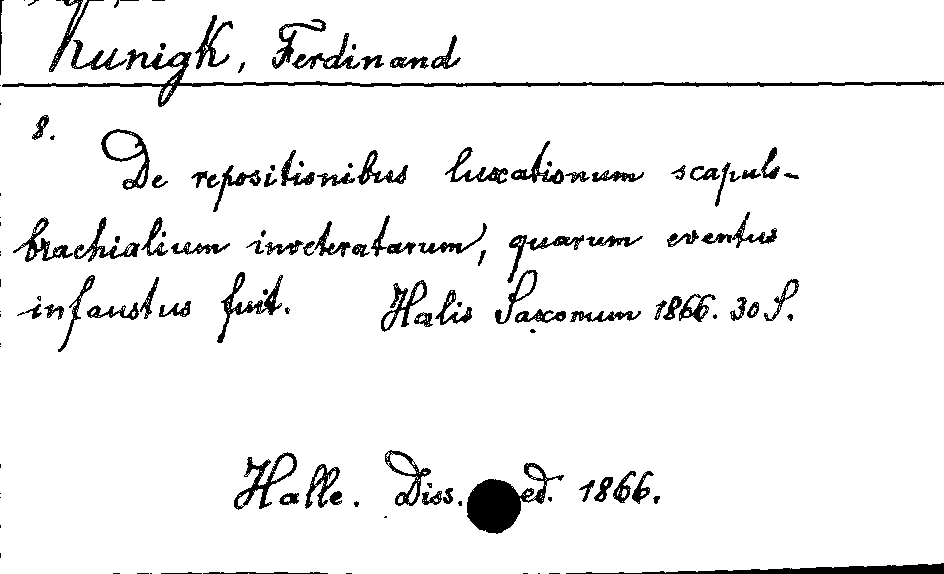 Kunigk, Ferdinand
8.
De repositionibus luxationum scapulo-
brachialium inveteratarum, quarum eventus
infaustus fuit. Halis Saxonum 1866. 30 S.
Halle. Diss. ed. 1866.